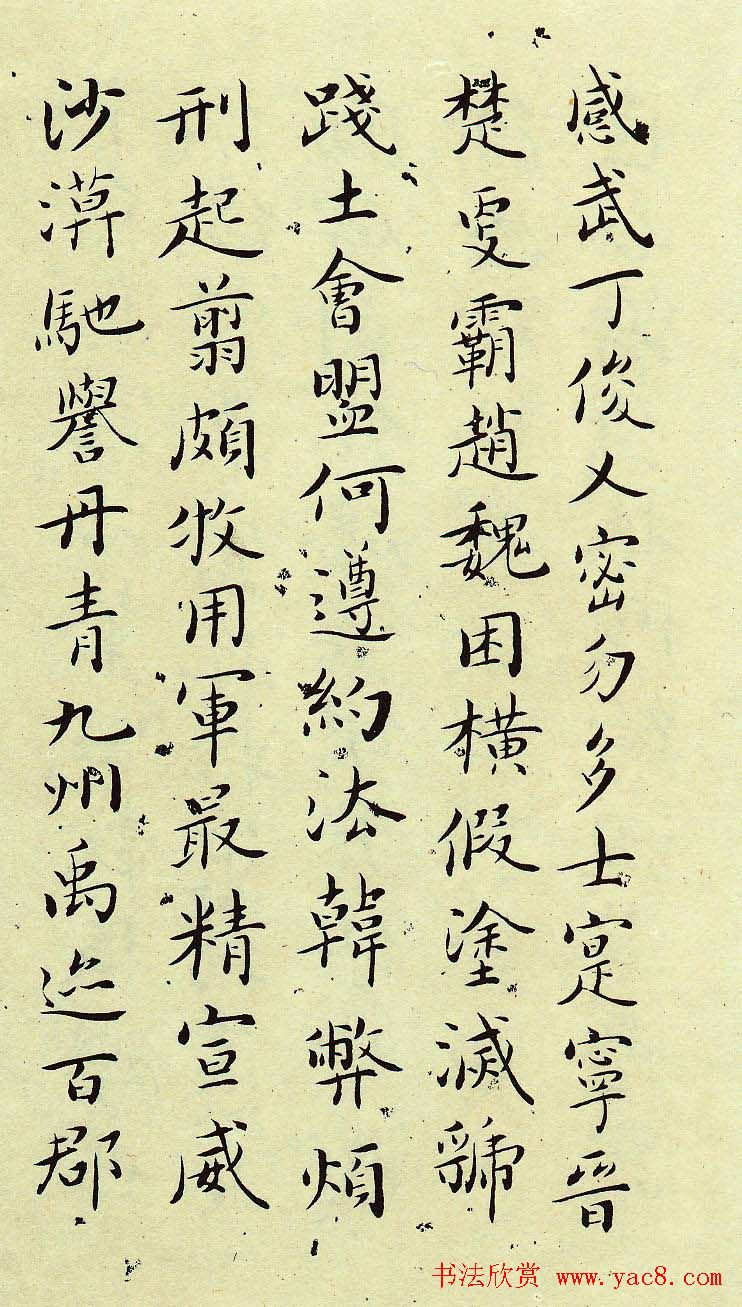 感武丁俊乂密勿多士寔寧晉
楚更霸趙魏困橫假塗滅虢
踐土會盟何遵約法韓弊煩
刑起翦頗牧用軍最精宣威
沙漠馳譽丹青九州禹迹百郡
书法欣赏 www.yac8.com